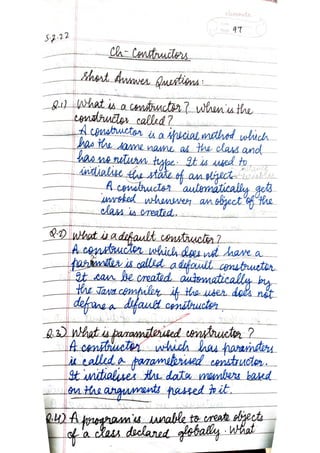 5.2.22
97
Ch- Constructors
Short Answer Questions:
Q.1) What is a constructor? When is the
constructor called?
A constructor is a special method which
has the same name as the class and
has no return type. It is used to
initialise the state of an object
A constructor automatically gets
invoked whenever an object of the
class is created.
Q.2) What is a default constructor?
A constructor which does not have a
parameter is called a default constructor
It can be created automatically by
the Java compiler if the user does not
define a default constructor.
Q.3) What is parameterised constructor?
A constructor which has parameters
is called a parameterised constructor.
It initialises the data members based
on the arguments passed to it.
Q.4) A program is unable to create objects
of a class declared globally. What